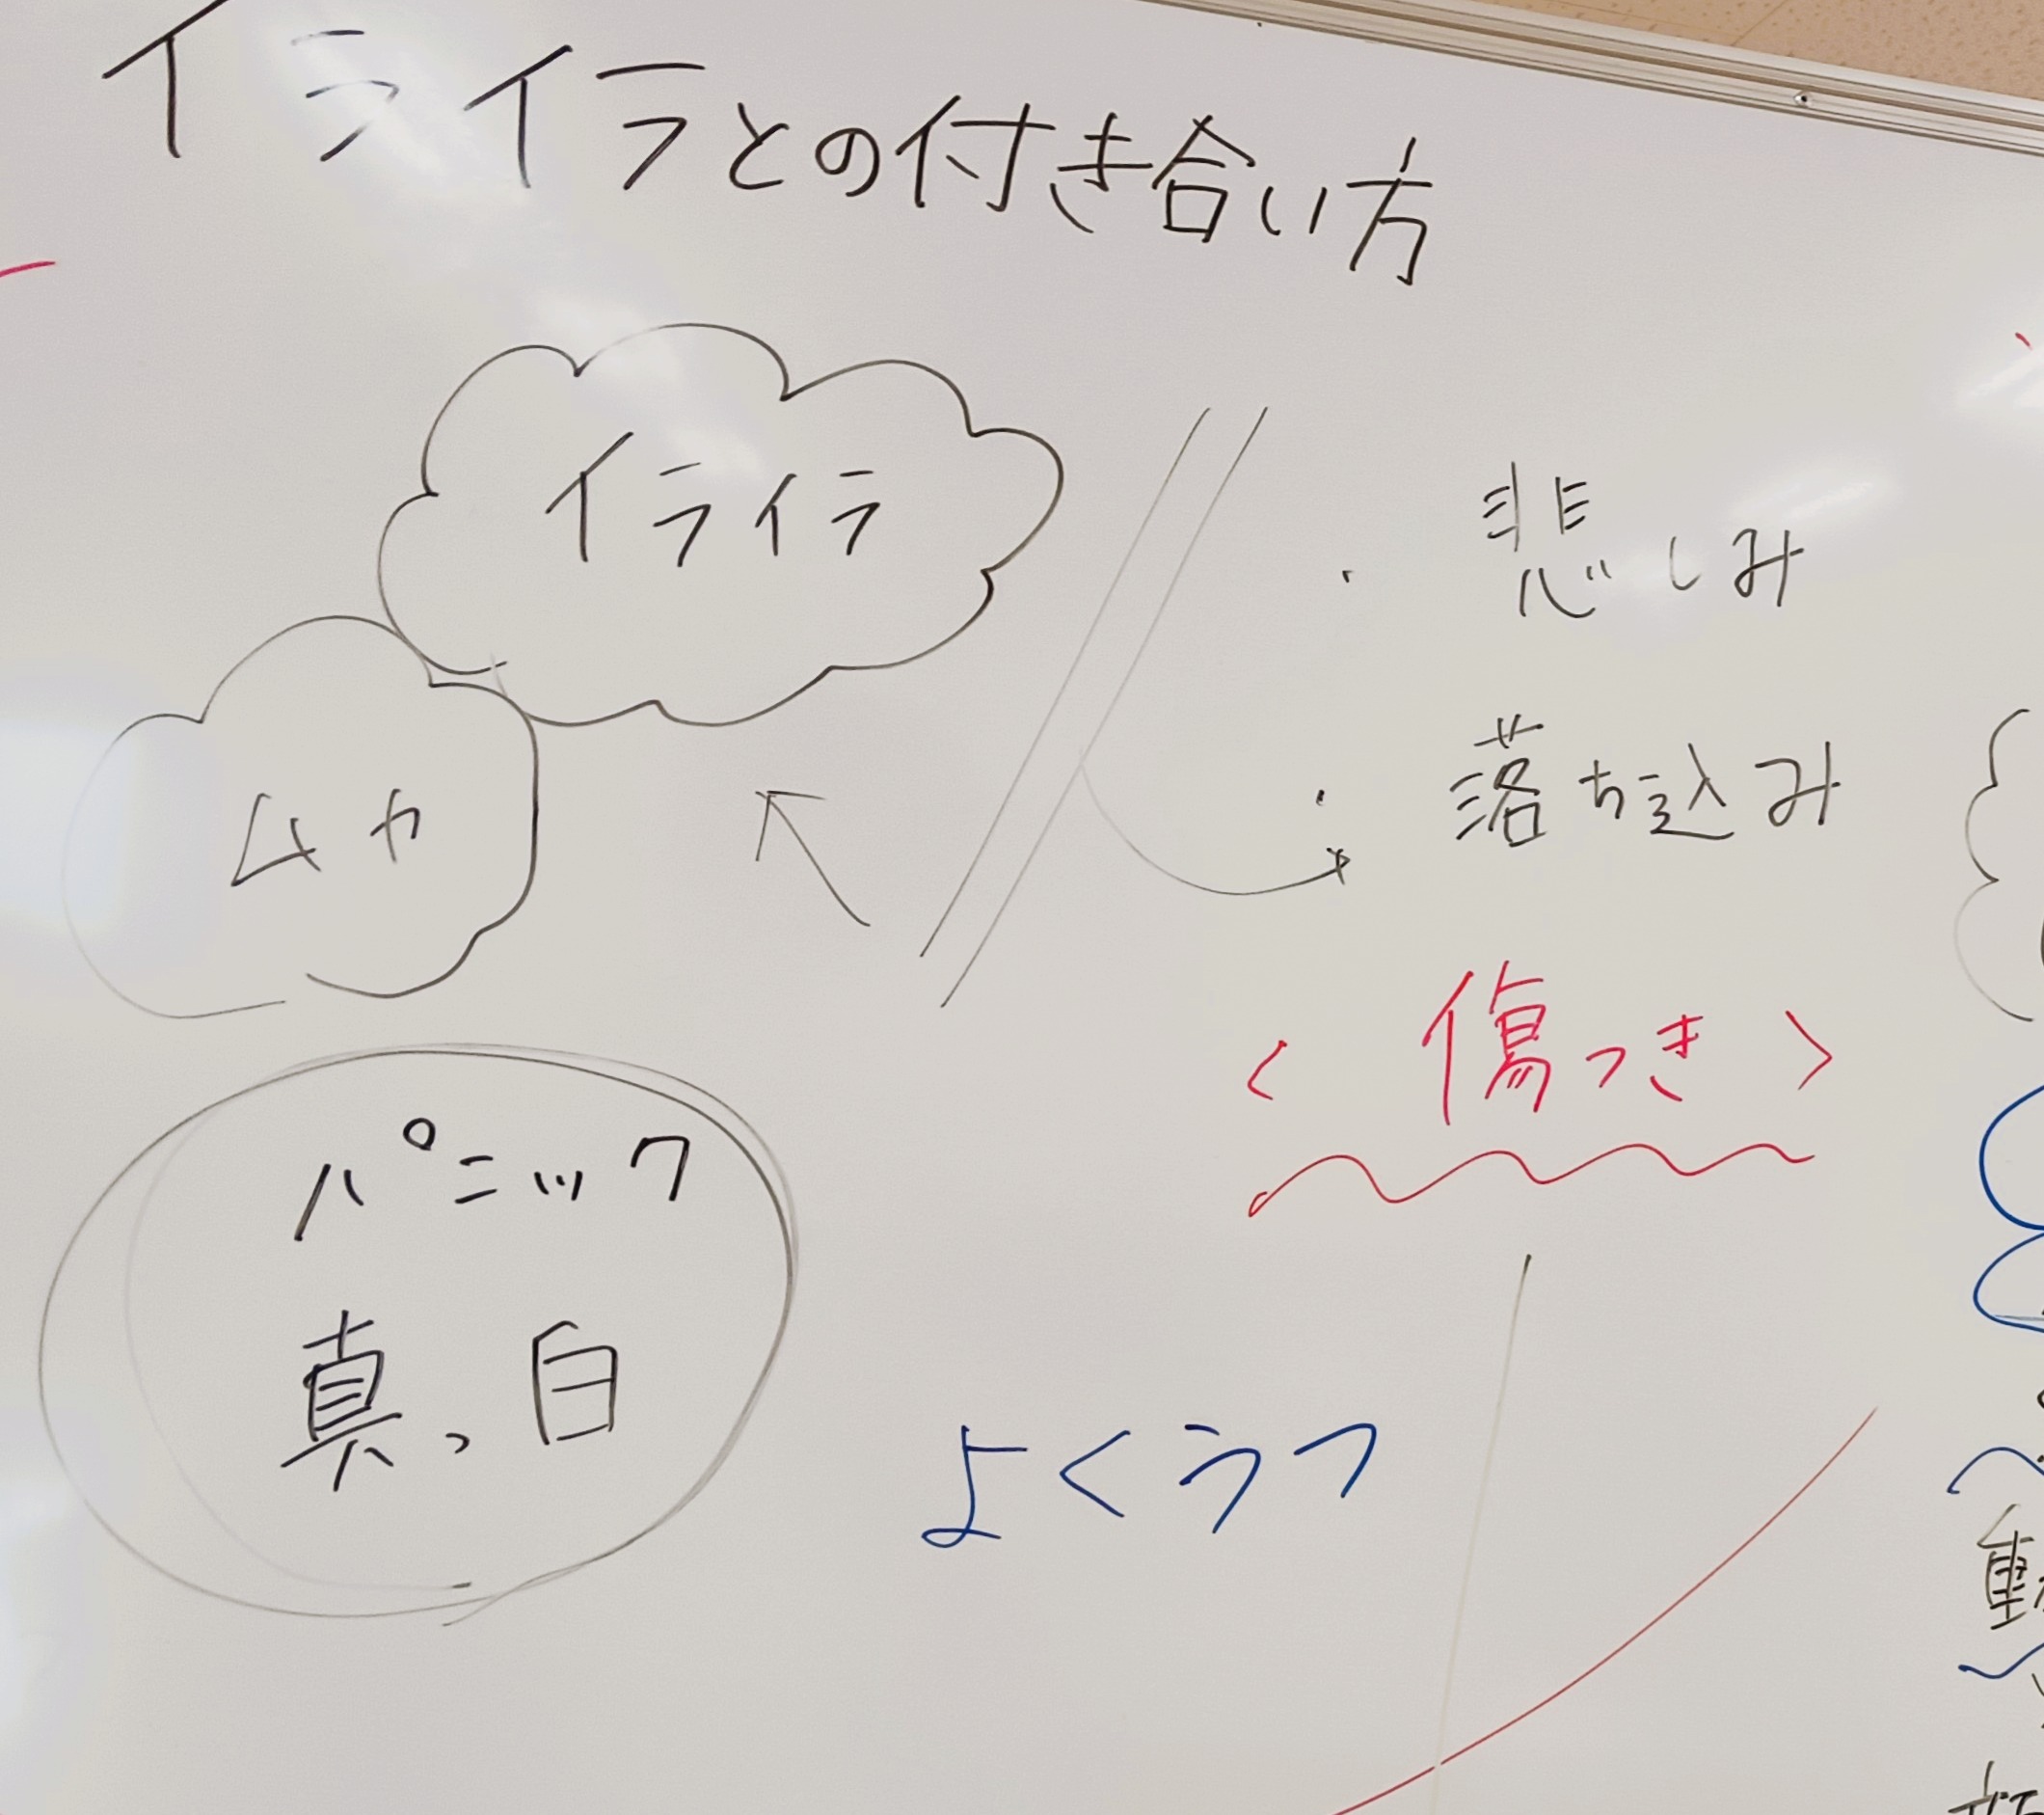 イライラとの付き合い方
イライラ
ムカ
・悲しみ
・落ち込み
<傷つき>
パニック
真っ白
よくうつ
動